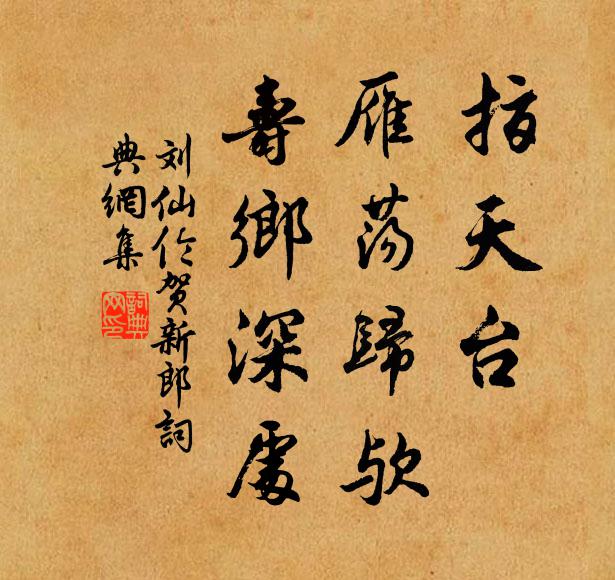 指天台
雁荡歸欤
壽鄉深處
刘仙伦贺新郎詞
典網集
詞典
网印